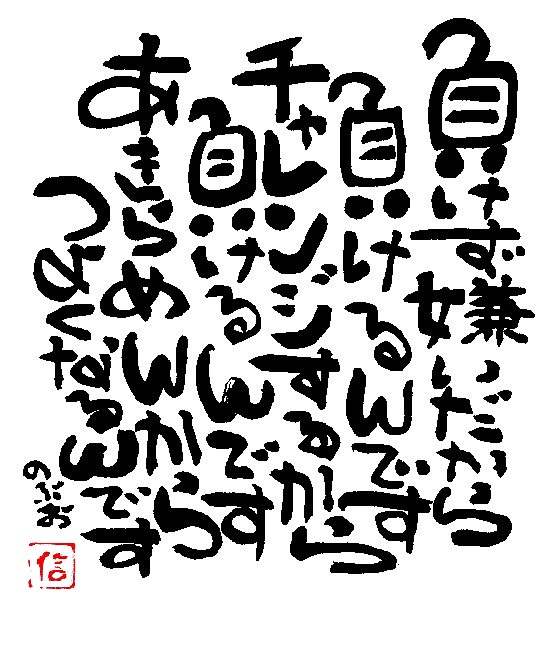 負けず嫌いだから
負けるんです
チャレンジするから
負けるんです
あきらめんから
つよくなるんです
のぶお
信